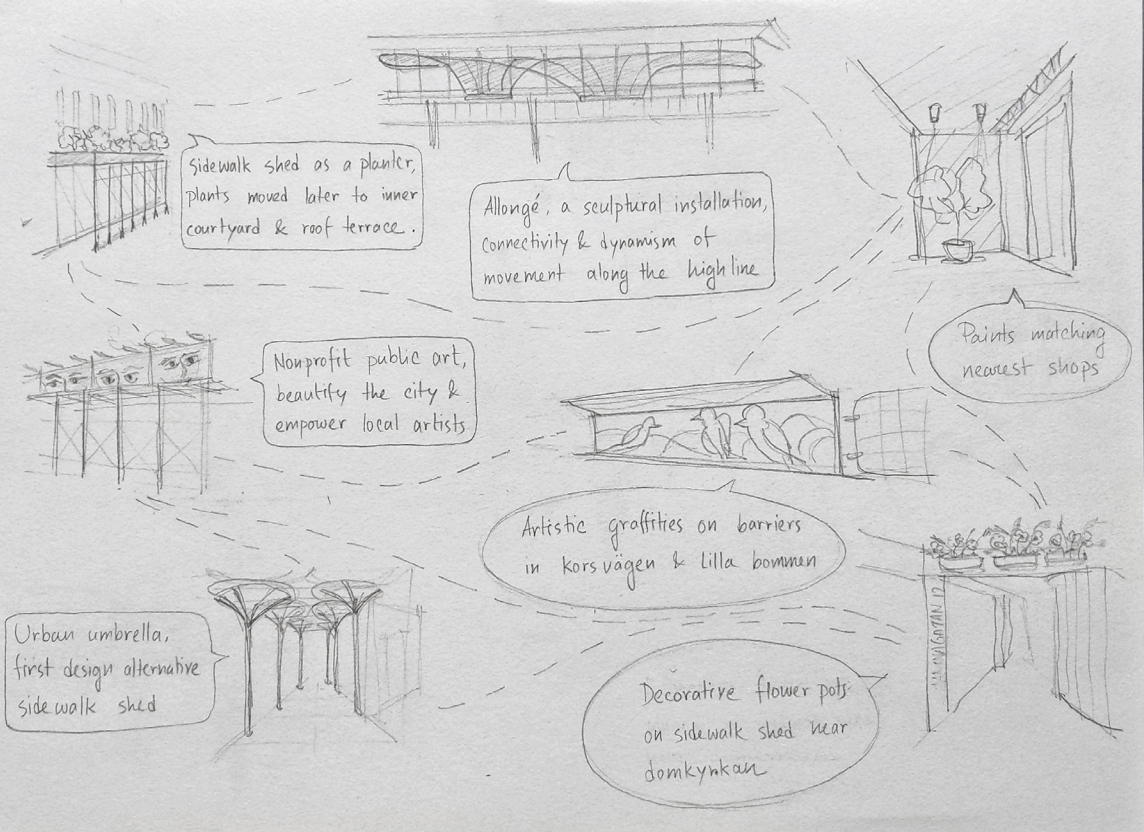 Sidewalk shed as a planter,
plants moved later to inner
courtyard & roof terrace.
Allongé, a sculptural installation,
connectivity & dynamism of
movement along the high line
Paints matching
nearest shops
Nonprofit public art,
beautify the city &
empower local artists
Artistic graffities on barriers
in korsvägen & Lilla bommen
Urban umbrella,
first design alternative
sidewalk shed
Decorative flower pots
on sidewalk shed near
domkyrkan